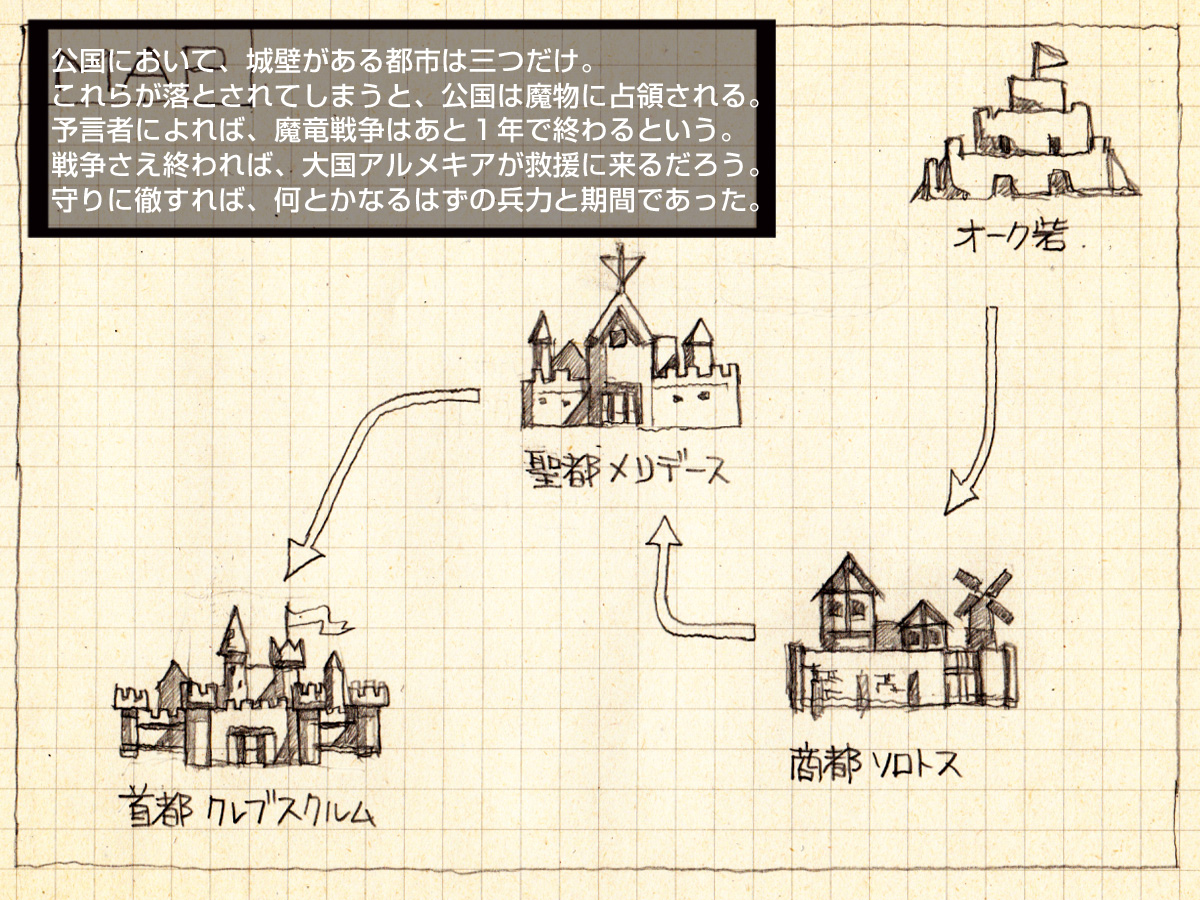 MAP
公国において、城壁がある都市は三つだけ。
これらが落とされてしまうと、公国は魔物に占領される。
予言者によれば、魔竜戦争はあと１年で終わるという。
戦争さえ終われば、大国アルメキアが救援に来るだろう。
守りに徹すれば、何とかなるはずの兵力と期間であった。
オーク砦
聖都メリデース
商都ソロトス
首都クレブスクルム